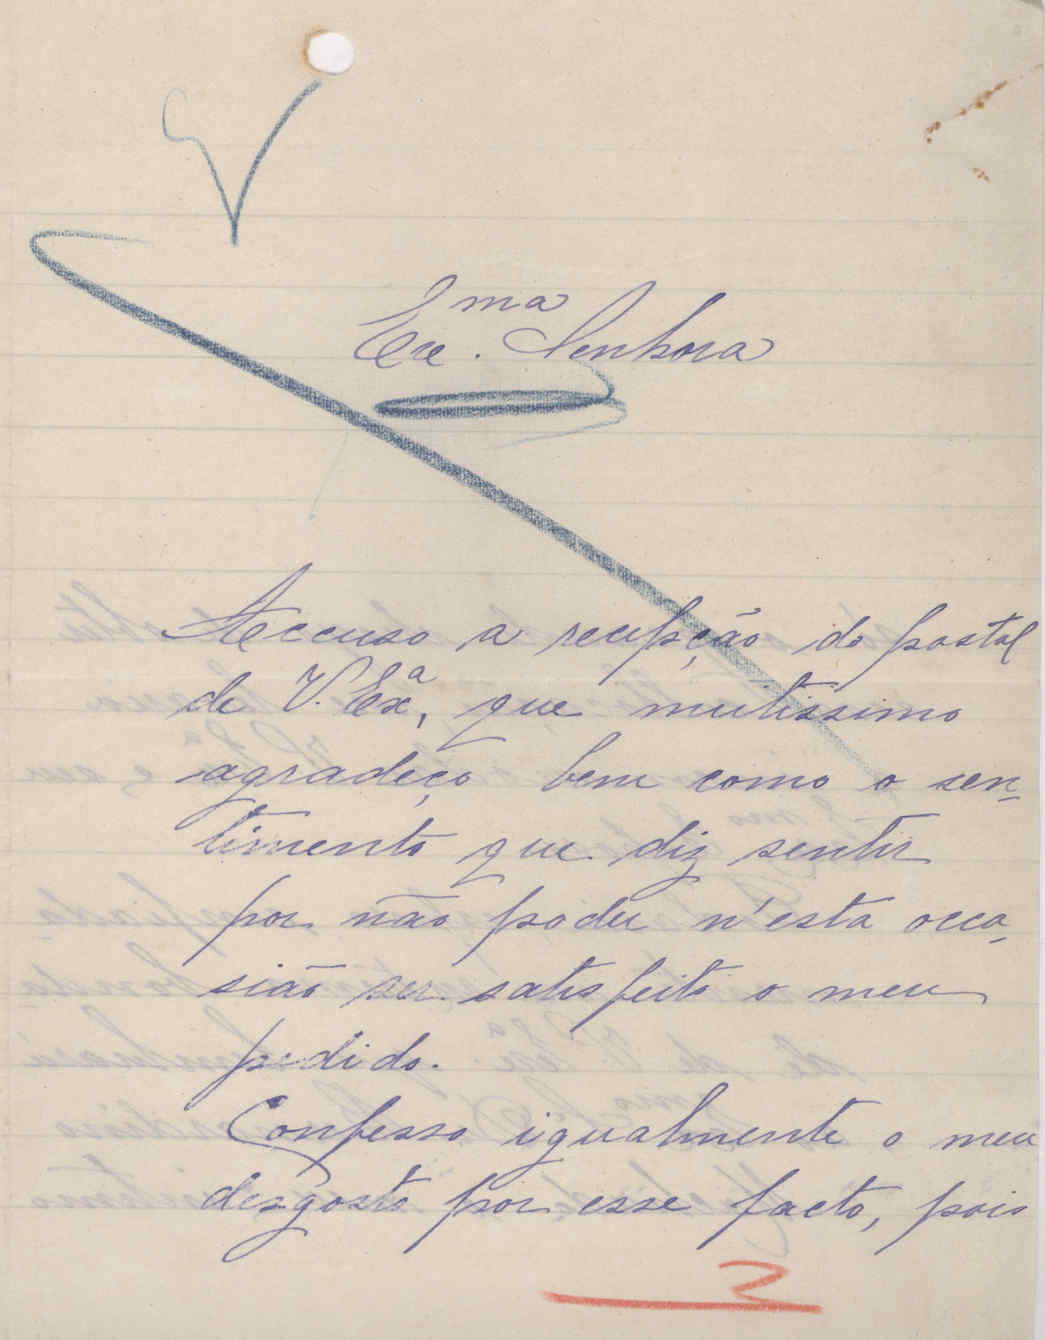 Exma. Senhora
Accuso a recepção do postal
de V. Exa, que muitissimo
agradeço bem como o sen-
timento que diz sentir
por não poder n'esta occa-
sião ser satisfeito o meu
pedido.
Confesso igualmente o meu
desgosto por esse facto, pois